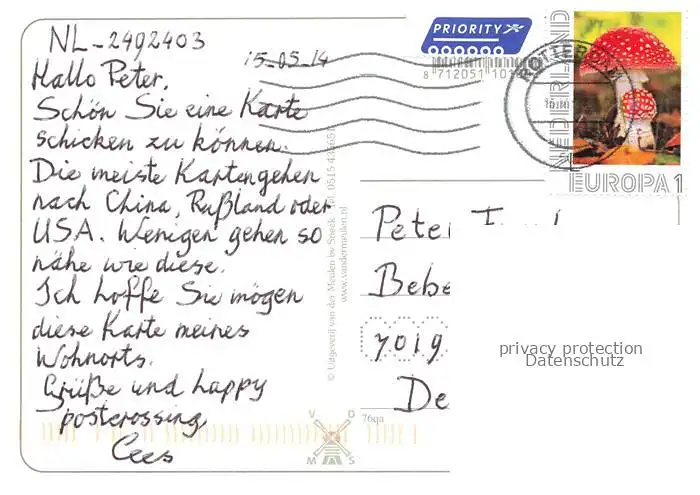 NL-2492403
15-05-14
Hallo Peter,
Schön Sie eine Karte
schicken zu können.
Die meiste Kartengehen
nach China, Rußland oder
USA. Wenigen gehen so
nähe wie diese.
Ich hoffe Sie mögen
diese Karte meines
Wohnorts.
Grüße und happy
postcrossing,
Cees
PRIORITY
NEDERLAND
EUROPA 1
© Uitgeverij van der Meulen bv Sneek
www.vandermeulen.nl
V D
M S
76qa
Peter
Bebe
7019
De
privacy protection
Datenschutz